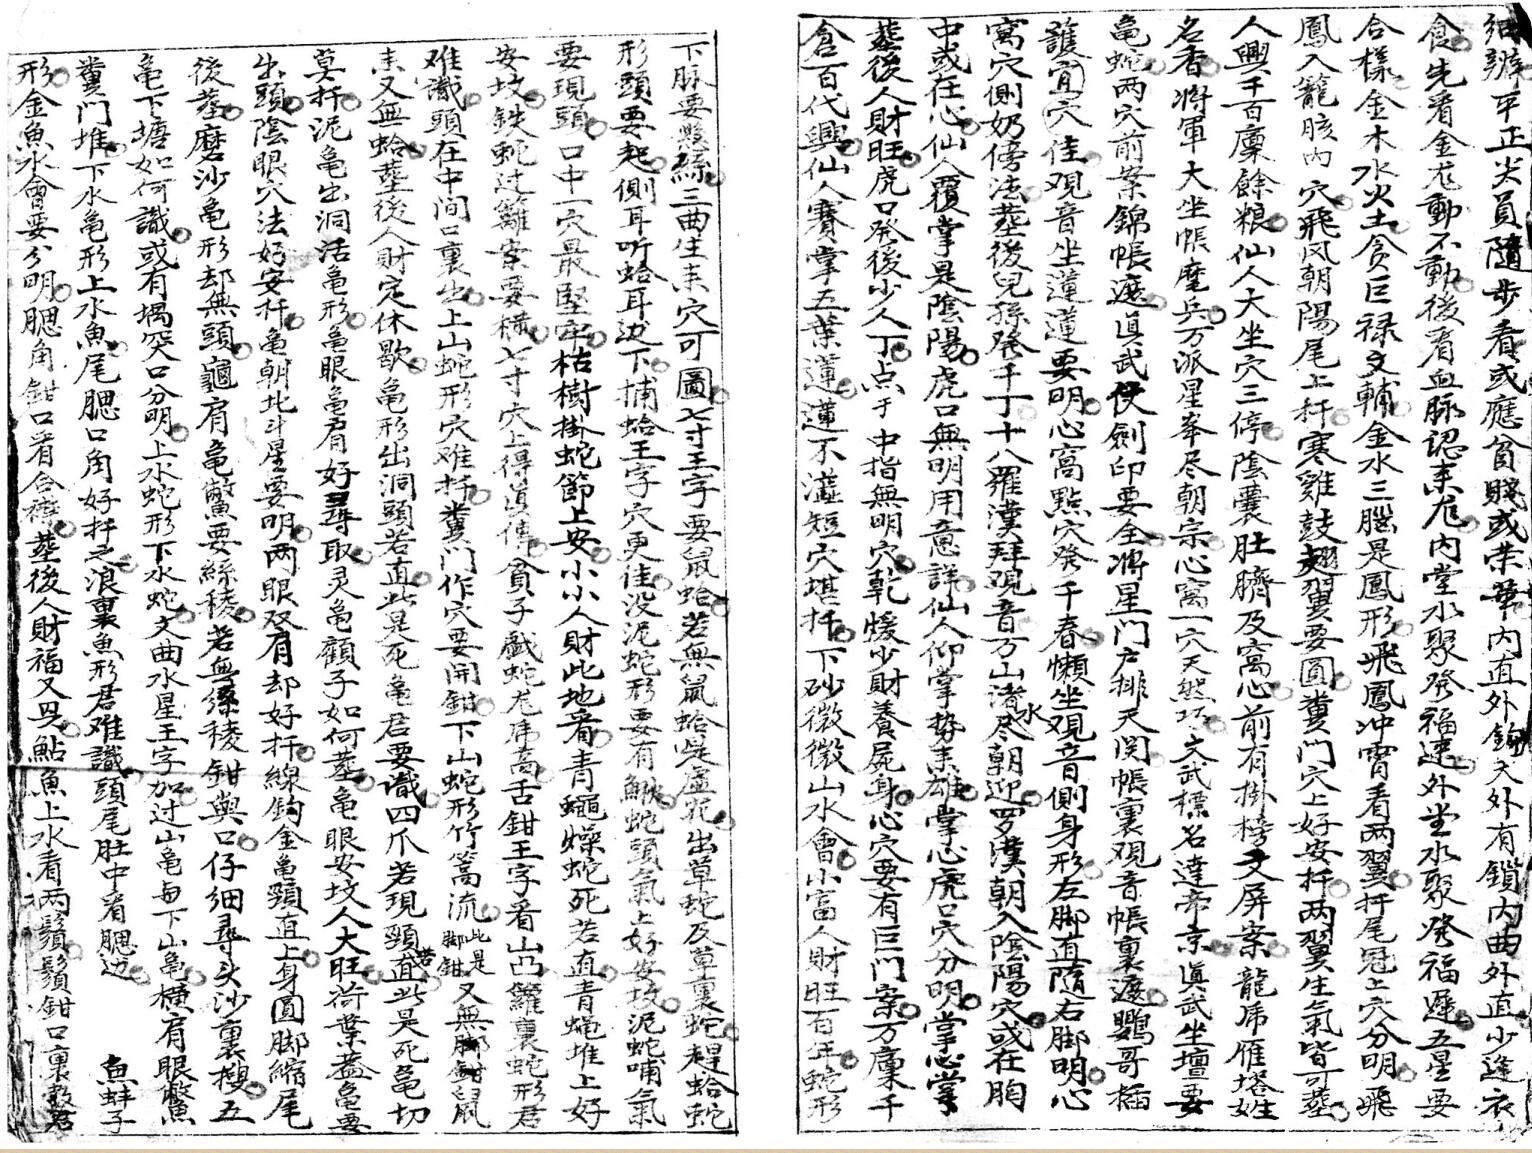 細辦平正尖員隨步看或應貧賤或荣華内直外鈎天外有鎖内曲外直少逢衣
食先看金龙動不動後看血脉認来龙内堂水聚發福速外堂水聚發福遲五星要
合樣金木水火土贪巨禄文輔金水三腦是鳳形飛鳳冲霄看两翼扦尾冠上穴分明飛
鳳入籠腋内穴飛凤朝陽尾上扦寒雞鼓翅翼要圓糞門穴上好安扦两翼生氣皆可塟
人興千百廩餘粮仙人大坐穴三停陰囊肚臍及窩心前有掛榜文屏案龍虎雁塔姓
名香将軍大坐帳麾兵万派星峯尽朝宗心窩一穴天然巧文武標名達帝京眞武坐壇要
亀蛇两穴前案錦帳遮眞武伏劍印要全将星门户排天関帳裏観音帳裏遮鸚哥插
護宜穴佳观音坐蓮蓮要明心窩點穴發千春懒坐观音側身形左脚直隨右脚明心
窩穴側奶傍法塟後兒孫發千丁十八羅漢拜观音万山渚水尽朝迎罗漢朝入陰陽穴或在胸
中或在心仙人覆掌是陰陽虎口無明用意詳仙人仰掌势来雄掌心虎口穴分明掌心掌
塟後人財旺虎口發後少人丁点于中指無明穴乾煖少財養屍身心穴要有巨门案万廩千
倉百代興仙人賽掌五葉蓮蓮不濫短穴堪扦下砂微微山水會小富人財旺百年蛇形
下脉要懸絲三曲生来穴可圖七寸王字要鼠蛤若無鼠蛤是虚花出草蛇及草裏蛇趕蛤蛇
形頭要起側耳听蛤耳边下捕蛤王字穴更佳没泥蛇形要有鰍蛇頭氣上好安坟泥蛇哺氣
要現頭口中一穴最堅牢枯樹掛蛇節上安小小人財此地看青蠅燥蛇死若直青蝇堆上好
安坟鉄蛇过籬案要横七寸穴上得眞傳貪子戲蛇龙虎高舌鉗王字看山凸籬裏蛇形君
难識頭在中间口裏出上山蛇形穴难扦糞门作穴要開鉗下山蛇形竹篙流此是脚鉗又無脚鉗鼠
来又無蛤塟後人財定休歇亀形出洞頭若直此是死亀君要識四爪若現頸若直此是死亀切
莫扦泥亀出洞活亀形亀眼亀肩好尋取灵亀顧子如何塟亀眼安坟人大旺荷葉蓋亀要
出頭陰眼穴法好安扦亀朝北斗星要明两眼双肩却好扦線鈎金亀頸直上身圓脚縮尾
後塟磨沙亀形却無頭龜肩亀鱉要絲稜若無絲稜鉗與口仔細尋头沙裏搜五
亀下塘如何識或有堨突口分明上水蛇形下水蛇文曲水星王字加过山亀每下山亀横肩眼鱉
糞门堆下水亀形上水魚尾腮口角好扦之浪裏魚形君难識頭尾肚中看腮边 魚蚌子
形金魚水會要分明腮角鉗口看合襟塟後人財福又男鮎魚上水看两鬚鬚鉗口裏君